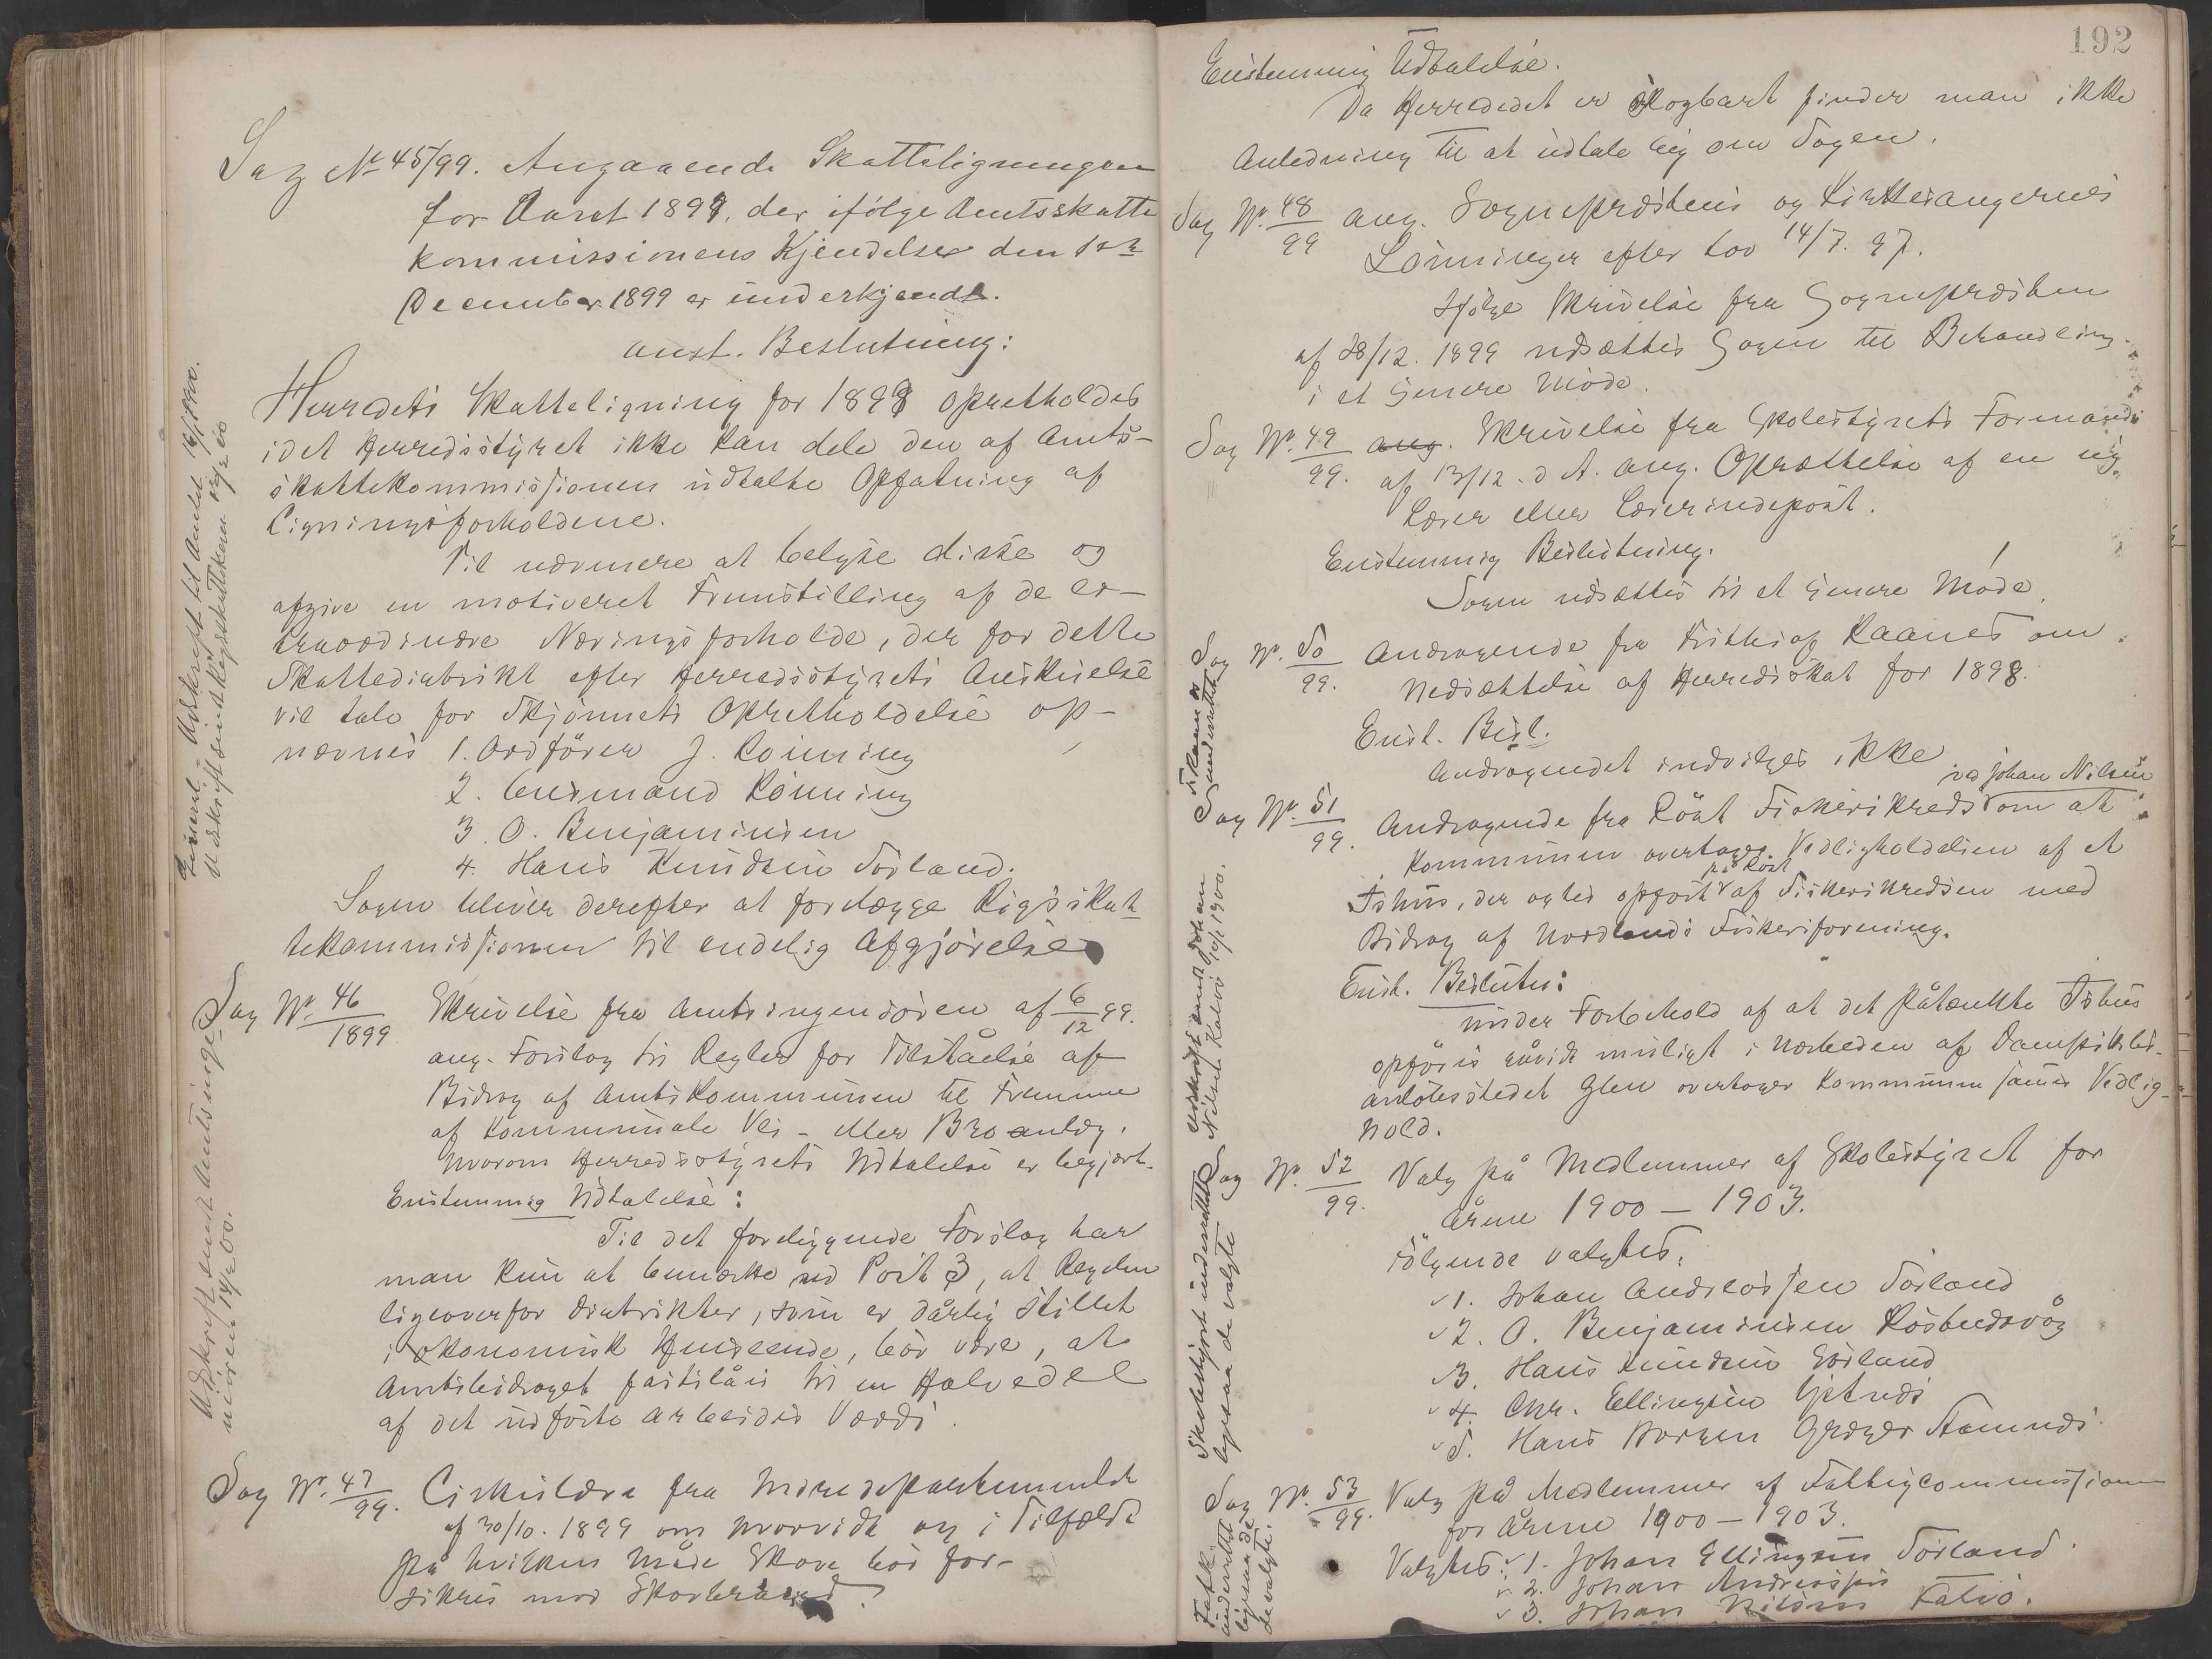 Sag No 45/99. Angaaende Skatteligningen
for Aaret 1899, der ifølge Amtsskatte
kommissionens Kjendelse den 1ste
December 1899 er underkjendt.
enst. Beslutning:
Herredets Skatteligning for 1899 opretholdes
idet Herredsstyret ikke kan dele den af Amts-
skattekommissionen udtalte Opfatning af
Ligningsforholdene.
Til nærmere at belyse disse og
afgive en motiveret Fremstilling af de ex-
traordinære Næringsforholde, der for dette
Skattedistrikt efter Herredsstyrets Anskuelse
vil tale for Skjønnets Opretholdelse op-
nævnes 1. Ordfører J. Rønning
2. Lensmand Rønning
3 O. Benjaminsen
4. Hans Knudsen Sørland.
Sagen bliver derefter at forelægge Rigsskat
tekommissionen til endelig Afgjørelse
Eenst. - Udskrift til Amtet
Udskrift sendt Rigsskattekom
Sag Nr. 46/1899 Skrivelse fra Amtsingeniøren af 6/12 99.
ang. Forslag til Regler for Tilståelse af
Bidrag af Amtskommunen til Fremme
af Kommunale Vei- eller Broanlæg,
hvorom Herredsstyrets Udtalelse er begjært.
Enstemmig Udtalelse:
Til det foreliggende Forslag har
man kun at bemærke ved Post 3, at Reglen
ligeoverfor Distrikter, som er dårlig stillet
i økonomisk Henseende, bør være, at
Amtsbidraget fastslåes til en Halvedel
af det udførte Arbeides Værdi.
Udskrift sendt Amtsinge-
niøren 14/2 00.
Sag Nr. 47/99. Cirkulære fra Indredepartementet
af 30/10. 1899 om hvorvidt og i Tilfælde
på hvilken Måde Skove bør for-
sikres mod Skovbrand?
192
Enstemmig Udtalelse.
Da Herredet er skogbart finder man ikke
Anledning til at udtale sig om Sagen.
Sag Nr. 48/99 ang. Sogneprestens og Kirkesangernes
Lønninger efter Lov 14/7. 97.
Ifølge Skrivelse fra Sognepresten
af 28/12. 1899 udsættes Sagen til Behandling
i et senere Møde.
Sag Nr. 49/99. ang. Skrivelse fra Skolestyrets Formand
af 13/12. d. A. ang. Oprættelse af en ny
Lærer eller Lærerindepost.
Enstemmig Beslutning.
Sagen udsættes til et senere Møde.
Sag Nr. 50/99. Andragende fra Frithiof Raanes om
Nedsættelse af Herredsskat for 1898.
Enst. Besl.
Andragendet indvilges ikke
Raanes er
underrettet
Sag Nr. 51/99. Andragende fra Röst Fiskerikreds ved Johan Nilsen om at
Kommunen overtager Vedligeholdelsen af et
Ishus, der agtes opført på Röst af Fiskerikredsen med
Bidrag af Nordlands Fiskeriforening.
Enst. Beslutn:
Under Forbehold af at det påtænkte Ishus
opføres såvidt muligt i Nærheden af Dampskibs-
anløbsstedet Glea overtager Kommunen samtes Vedlig-
hold.
Udskrift sendt Johan
Nilsen Kalvø 10/1 1900.
Sag Nr. 52/99. Valg på Medlemmer af Skolestyret for
Årene 1900 — 1903.
Følgende valgtes.
1. Johan Andreassen Sørland
2. O. Benjaminsen Kosbudvåg
3. Hans Knudsen Sørland
4. Chr. Ellingsen Ystnes
5. Hans Borgen Grøger Stamnes
Skolestyret underrettet
ligesaa de valgte
Sag Nr. 53/99. Valg på Medlemmer af Fattigcommissionen
for Årene 1900 — 1903.
Valgtes: 1. Johan Ellingsen Sørland.
2. Johan Andreassen
3. Johan Nilsen Kalvø.
Fattk.
underrettet
ligesaa de
valgte.